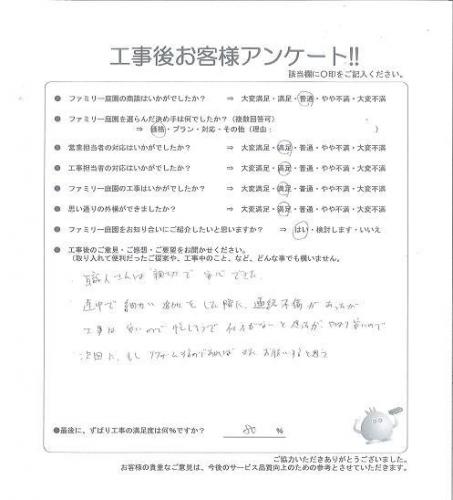 工事後お客様アンケート!!
該当欄に〇印をご記入ください。
● ファミリー庭園の商談はいかがでしたか? ⇒ 大変満足・満足・普通・やや不満・大変不満
● ファミリー庭園を選らんだ決め手は何でしたか?(複数回答可)
⇒ 価格・プラン・対応・その他(理由: )
● 営業担当者の対応はいかがでしたか? ⇒ 大変満足・満足・普通・やや不満・大変不満
● 工事担当者の対応はいかがでしたか? ⇒ 大変満足・満足・普通・やや不満・大変不満
● ファミリー庭園の工事はいかがでしたか? ⇒ 大変満足・満足・普通・やや不満・大変不満
● 思い通りの外構ができましたか? ⇒ 大変満足・満足・普通・やや不満・大変不満
● ファミリー庭園をお知り合いにご紹介したいと思いますか? ⇒ はい・検討します・いいえ
● 工事後のご意見・ご感想・ご要望をお聞かせください。
(取り入れて便利だったご提案や、工事中のこと、など、どんな事でも構いません。
・職人さんは親切で安心できた。
途中で細かい追加をした際に、連絡不備があったが
工事は安いので忙しそうで仕方がないと思うが やはり安いので
次回に、もしリフォームするのであれば またお願いすると思う
●最後に、ずばり工事の満足度は何%ですか? 80 %
ご協力いただきありがとうございました。
お客様の貴重なご意見は、今後のサービス品質向上のための参考とさせていただきます。